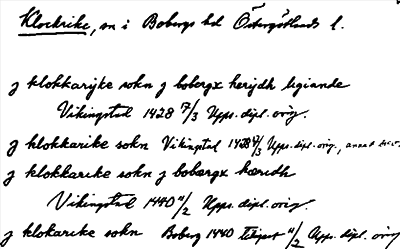 Klockrike, sn i Bobergs hd Östergötlands l.
j klokkarijke sokn j bobergx herijdh ligiande
Vikingstad 1428 7/3 Upps. dipl. orig.
j klokkarike sokn Vikingstad 1428 7/3 Upps. dipl. orig.,
j klokkarike sokn j bobærgx hæridh
Vikingstad 1440 11/2 Upps. dipl. orig.
j klokarike sokn Boberg 1440 11/2 Upps. dipl. orig.